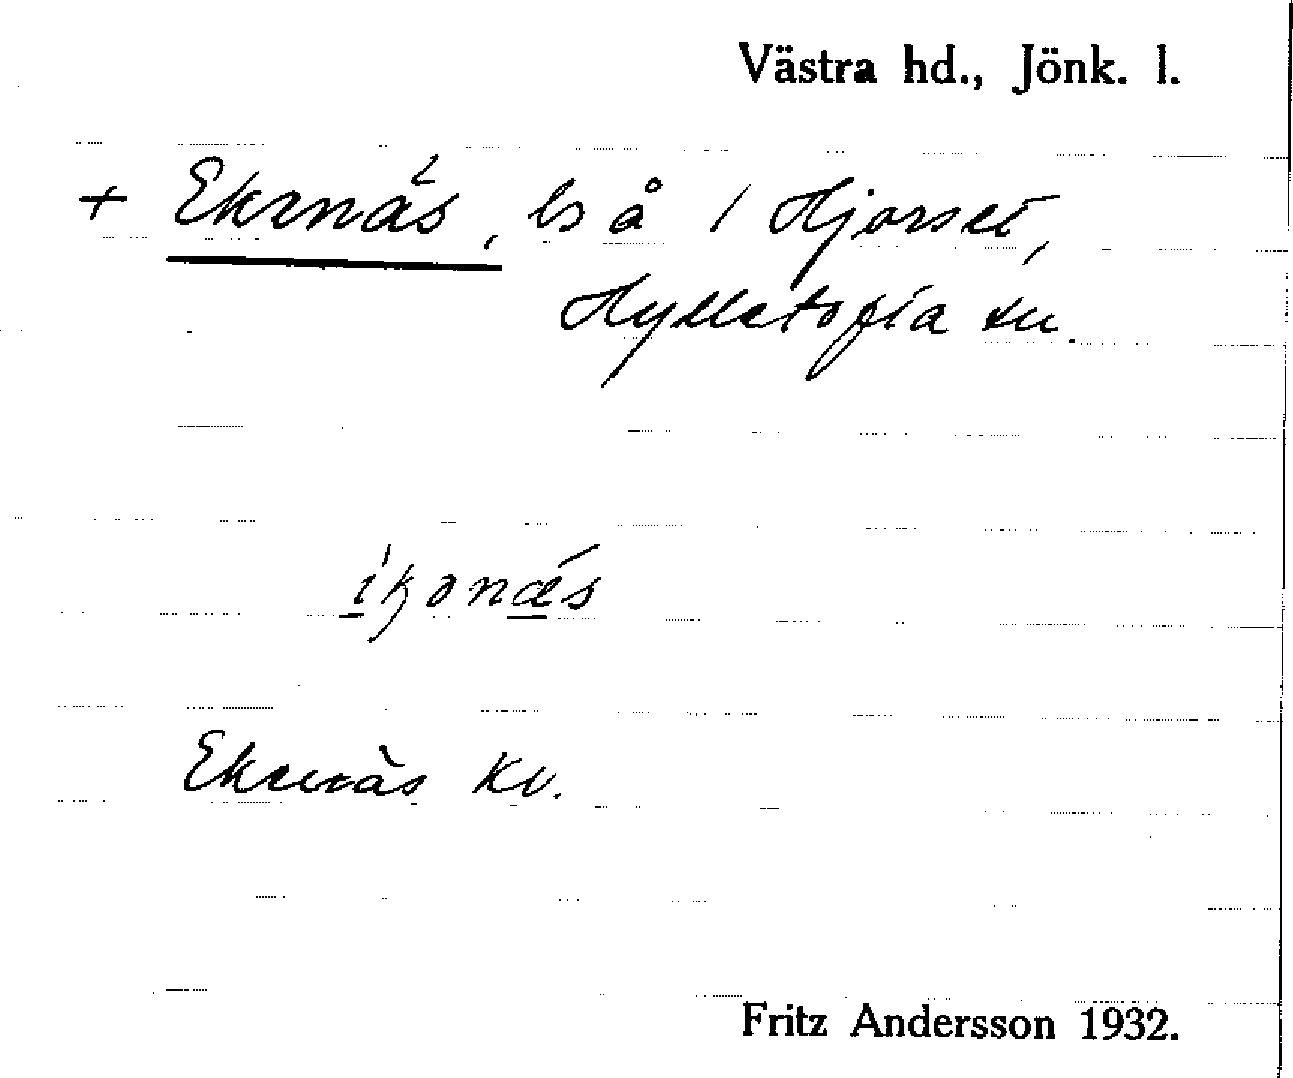 Västra hd., Jönk. l.
+ Ekenäs, ls å 1 Hjorset,
Hylletofta sn.
ikɘnäs
Ekenäs Kv.
Fritz Andersson 1932.